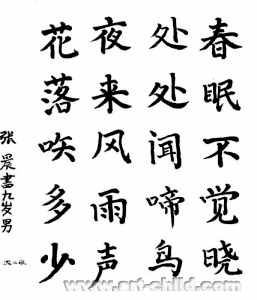 春眠不觉晓
处处闻啼鸟
夜来风雨声
花落唉多少
张晨书九岁男
www.art-child.com